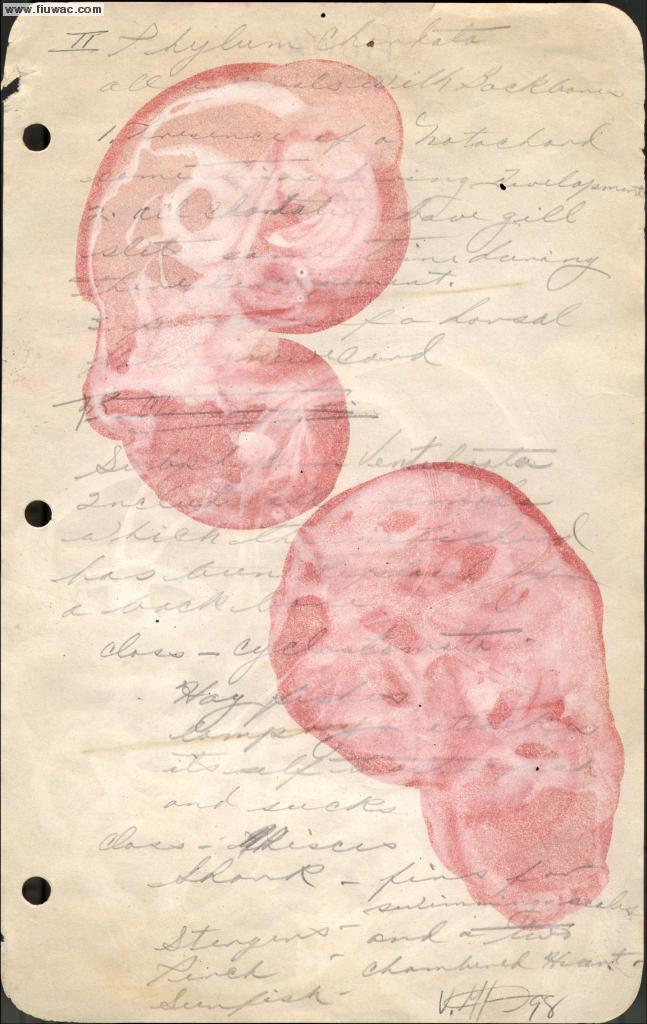 www.fiuwac.com
II Phylum Chordata
all animals with Backbones
1. Presence of a Notochord
some time during Development
2. all chordates have gill
slits some time during
their development.
of a dorsal
Includes all animals
which the
has been by
a back bone.
class - cyclostomata -
Hag fishes
Lamprey attaches
its self to
and sucks
class - Pisces
Shark - fins for
swimming - scales
Sturgens - and a two
Perch - chambered Heart -
Sunfish -
98